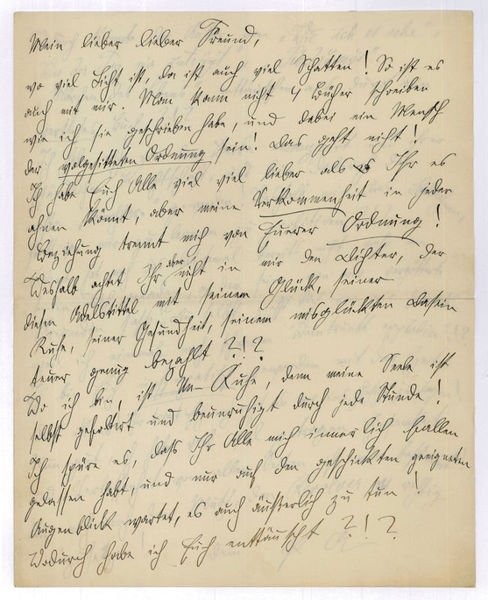 Mein lieber lieber Freund,
wo viel Licht ist, da ist auch viel Schatten! So ist es
auch mit mir. Man kann nicht 4 Bücher schreiben
wie ich sie geschrieben habe, und dabei ein Mensch
der wolgesitteten Ordnung sein! Das geht nicht!
Ich habe Euch Alle viel viel lieber als Ihr es
ahnen könnt, aber meine Verkommenheit in jeder
Beziehung trennt mich von Euerer Ordnung!
Weshalb achtet Ihr aber nicht in mir den Dichter, der
diesen Adelstitel mit seinem Glück, seiner
Ruhe, seiner Gesundheit, seinem misglückten Dasein
teuer genug bezahlt?!?
Wo ich bin, ist Un-Ruhe, denn meine Seele ist
selbst gefoltert und beunruhigt durch jede Stunde!
Ich spüre es, dass Ihr Alle mich innerlich fallen
gelassen habt, und nur auf den geschickten geeigneten
Augenblick wartet, es auch äußerlich zu tun!
Wodurch habe ich Euch enttäuscht?!?